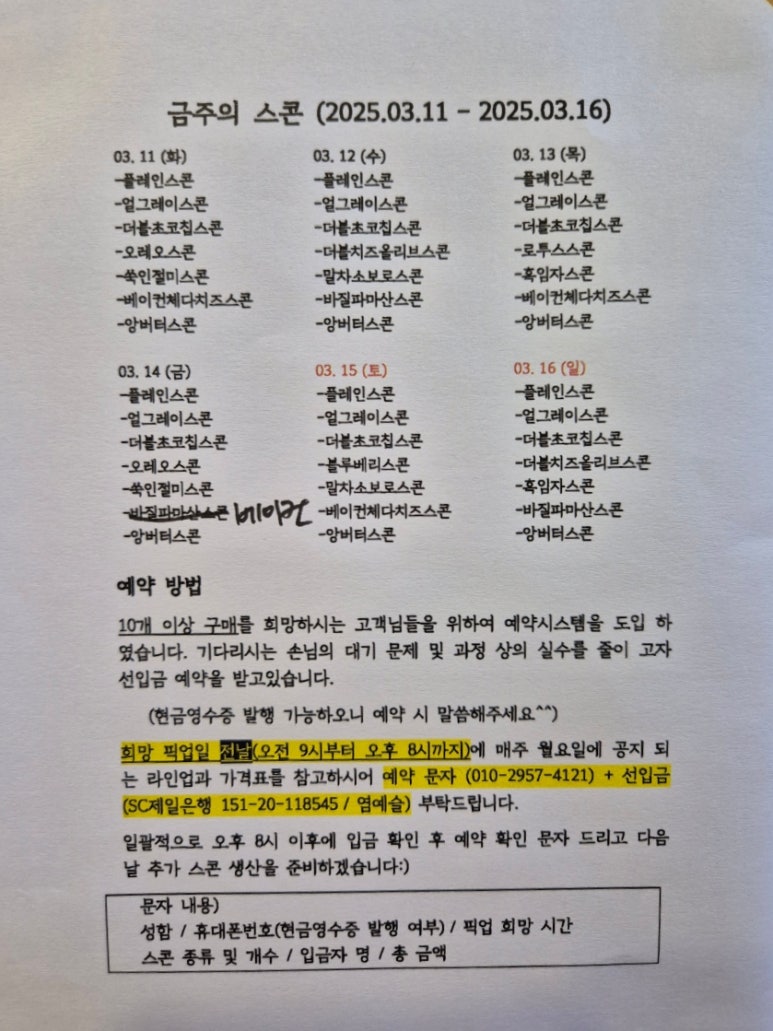 금주의 스콘 (2025.03.11 - 2025.03.16)
03. 11 (화)
-플레인스콘
-얼그레이스콘
-더블초코칩스콘
-오레오스콘
-쑥인절미스콘
-베이컨체다치즈스콘
-앙버터스콘
03. 12 (수)
-플레인스콘
-얼그레이스콘
-더블초코칩스콘
-더블치즈올리브스콘
-말차소보로스콘
-바질파마산스콘
-앙버터스콘
03. 13 (목)
-플레인스콘
-얼그레이스콘
-더블초코칩스콘
-로투스스콘
-흑임자스콘
-베이컨체다치즈스콘
-앙버터스콘
03. 14 (금)
-플레인스콘
-얼그레이스콘
-더블초코칩스콘
-오레오스콘
-쑥인절미스콘
-바질파마산스콘 베이컨
-앙버터스콘
03. 15 (토)
-플레인스콘
-얼그레이스콘
-더블초코칩스콘
-블루베리스콘
-말차소보로스콘
-베이컨체다치즈스콘
-앙버터스콘
03. 16 (일)
-플레인스콘
-얼그레이스콘
-더블초코칩스콘
-더블치즈올리브스콘
-흑임자스콘
-바질파마산스콘
-앙버터스콘
예약 방법
10개 이상 구매를 희망하시는 고객님들을 위하여 예약시스템을 도입 하
였습니다. 기다리시는 손님의 대기 문제 및 과정 상의 실수를 줄이 고자
선입금 예약을 받고있습니다.
(현금영수증 발행 가능하오니 예약 시 말씀해주세요^^)
희망 픽업일 전날(오전 9시부터 오후 8시까지)에 매주 월요일에 공지 되
는 라인업과 가격표를 참고하시어 예약 문자 (010-2957-4121) + 선입금
(SC제일은행 151-20-118545 / 염예슬) 부탁드립니다.
일괄적으로 오후 8시 이후에 입금 확인 후 예약 확인 문자 드리고 다음
날 추가 스콘 생산을 준비하겠습니다:)
문자 내용)
성함 / 휴대폰번호(현금영수증 발행 여부) / 픽업 희망 시간
스콘 종류 및 개수 / 입금자 명 / 총 금액